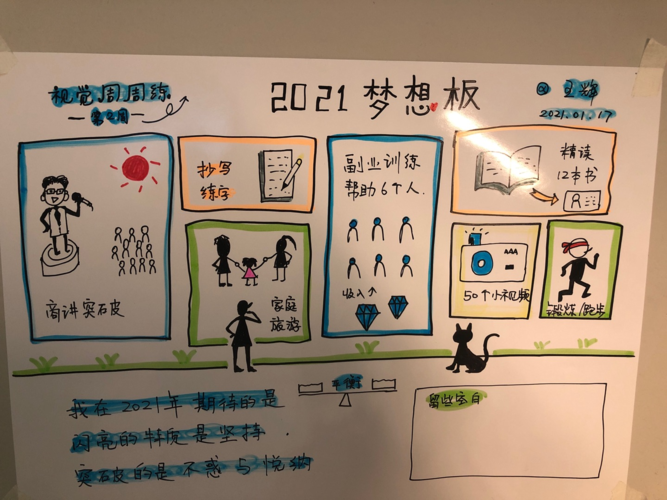 视觉周周练
2021梦想板
@王辉
2021.01.17
抄写
练字
副业训练
帮助6个人.
收入↑
精读
12本书
商讲突破
家庭
旅游
50个小视频
锻炼/跑步
平衡
我在2021年期待的是
闪亮的特质是坚持.
突破的是不惑与悦纳
留些空白